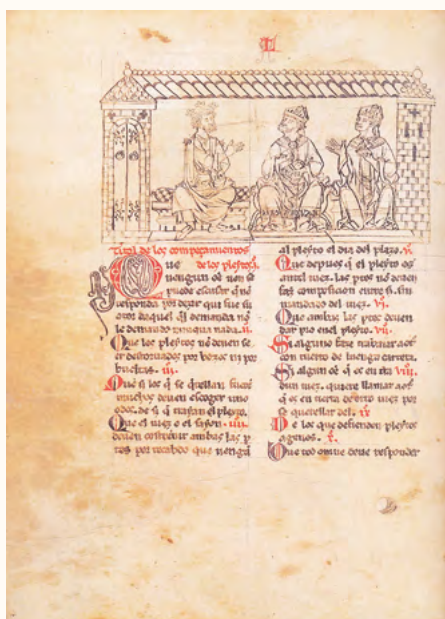 Titol de los compeçamientos
Que de los pleytos.
nengun õ non se
puede escusar q̃ nõ
responda por dezir que fue su
otor daquel q̃l demanda nõ
le demando nunqua nada. ii.
Que los pleytos nõ deuen se
er destoruados por bozes ni por
bueltas. iii.
Que si los q̃ se quellan fuerẽ
muchos deuen escoger uno
odos. de si q̃ trayan el pleyto.
Que el iuez o el sayon. iiii.
deuen costrenir ambas las p
tes por recabdo que uengã
al pleyto el dia del plazo. v.
Que depues q̃ el pleyto es
antel iuez. las ptes nõ deuen
faz composicion entre si. sin
mandado del iuez. vi.
Que ambas las ptes deuen
dar en el pleyto. vii.
Si alguno faze trabaiar aotr̃
con tuerto de luenga carrera.
Si algun õe q̃ es en tr̃a viii
dun iuez. quiere llamar aotr̃
q̃ es en tierra dotro iuez por
se querellar del. ix
De los que defienden pleytos
agenos. x.
Que tod omne deue responder